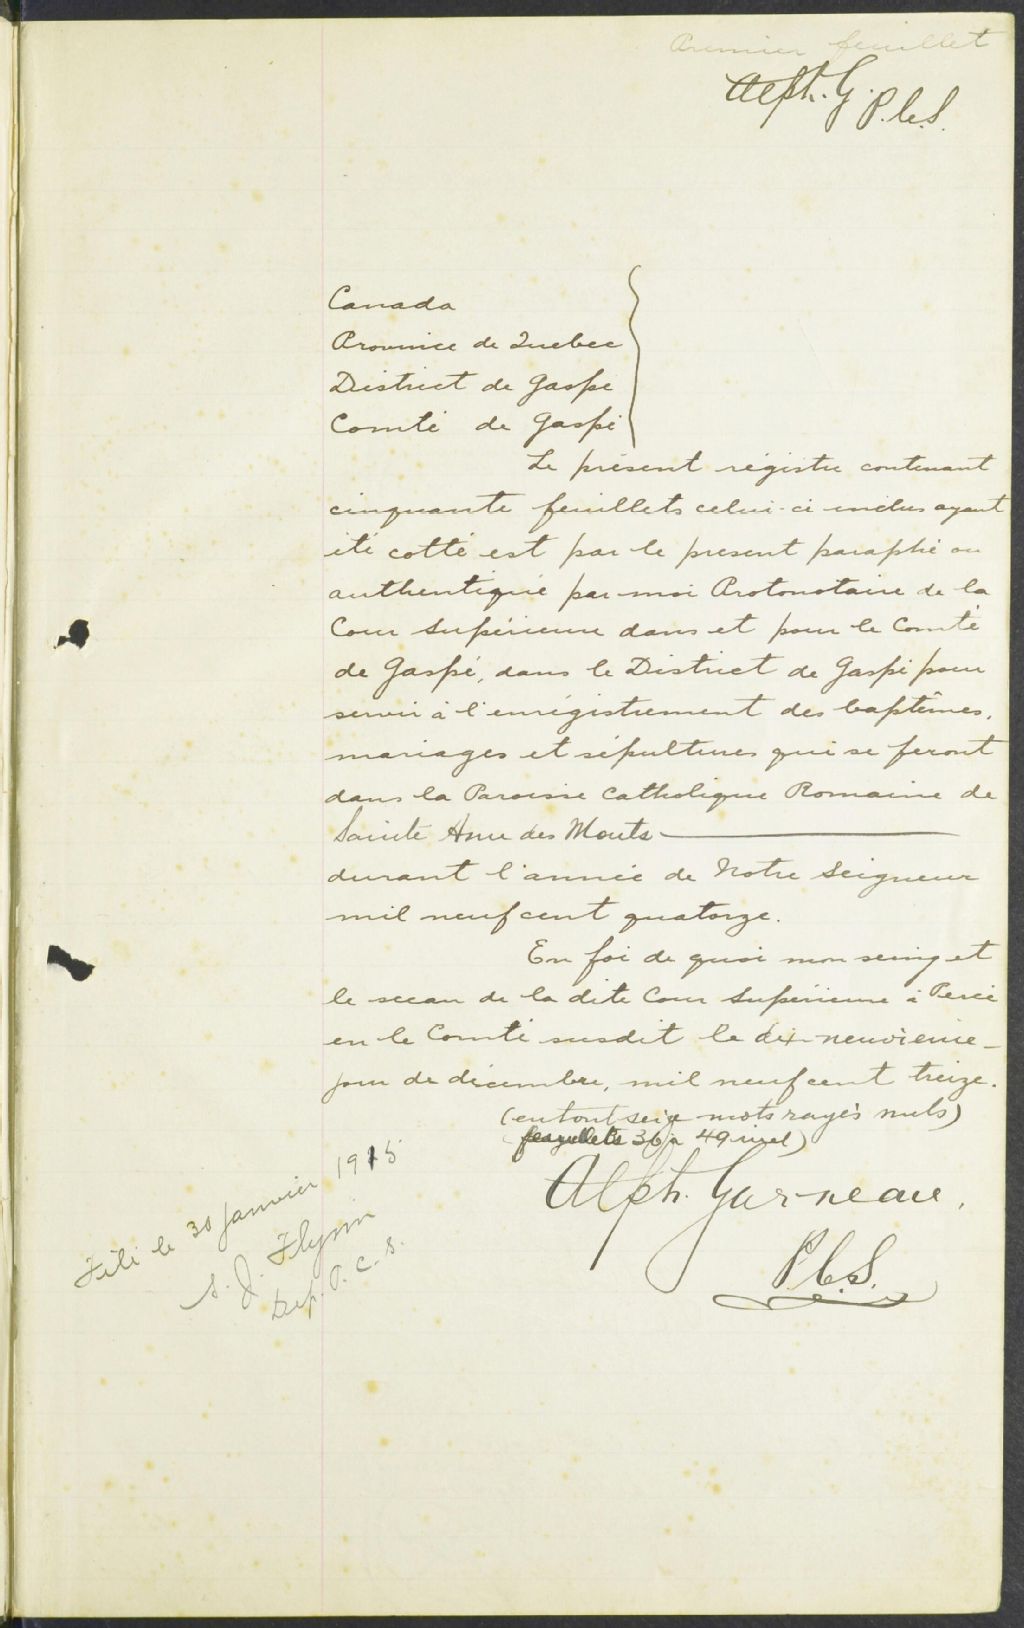 Premier feuillet
Alph. G. P.C.S.
Canada
Province de Quebec
District de Gaspé
Comté de Gaspé
Le présent régistre contenant
cinquante feuillets celui-ci inclus ayant
été cotté est par le present paraphé ou
authentiqué par moi Protonotaire de la
Cour Supérieure dans et pour le Comté
de Gaspé, dans le District de Gaspé pour
servir à l'enrégistrement des baptêmes,
mariages et sépultures qui se feront
dans la Paroisse Catholique Romaine de
Sainte Anne des Monts
durant l'année de Notre Seigneur
mil neuf cent quatorze.
En foi de quoi mon seing et
le sceau de la dite Cour Supérieure à Percé
en le Comté susdit le dix-neuvième
jour de décembre, mil neuf cent treize.
(en tout mots rayés nuls)
(feuillets 36 a 49)
Alph. Garneau,
P.C.S.
Filé le 30 janvier 1915
S. J. Flynn
Dep. P. C. S.